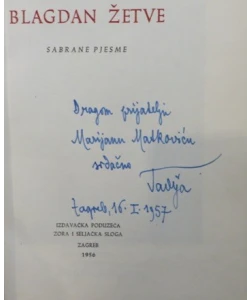 BLAGDAN ŽETVE
SABRANE PJESME
Dragom prijatelju
Marijanu Matkoviću
srdačno
Tadija
Zagreb, 16. I. 1957
IZDAVAČKA PODUZEĆA
ZORA I SELJAČKA SLOGA
ZAGREB
1956